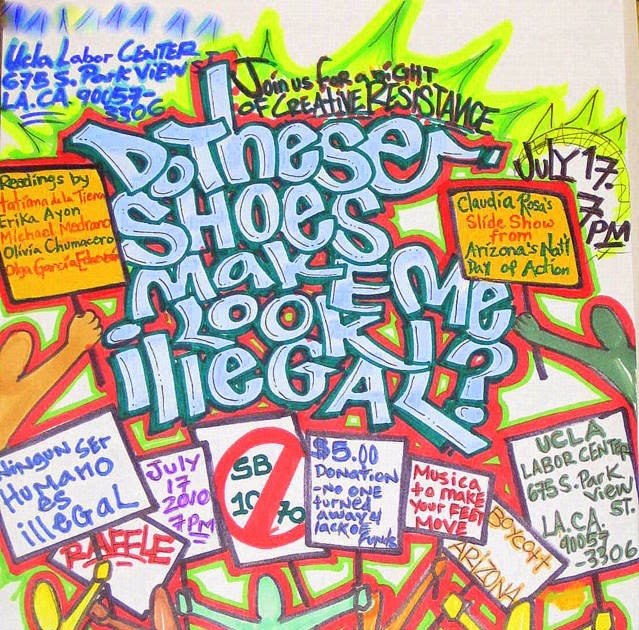 Ucla Labor CENTER
675 S. Park View ST.
LA. CA. 90057-
3306
Join us for a night
OF CREATIVE RESISTANCE
Do These
SHOES
Make Me
LOOK
illeGAL?
JULY 17.
7
PM
Readings by
Tatiana de la Tierra
Erika Ayon
Michael Medrano
Olivia Chumacero
Olga García Echeverría
Claudia Rosa's
Slide Show
from
Arizona's Nat'l
Day of Action
NINGUN SER
HUMANO
ES
illeGAL
RAFFLE
JULY
17 2010
7PM
SB
1070
$5.00
DONATION
-NO ONE
turned
away 4
lack OF
FUNDS
Musica
to make
your FEET
MOVE
BOYCOTT
ARIZONA
UCLA
LABOR CENTER
675 S. Park
View
ST.
LA. CA.
90057
-3306